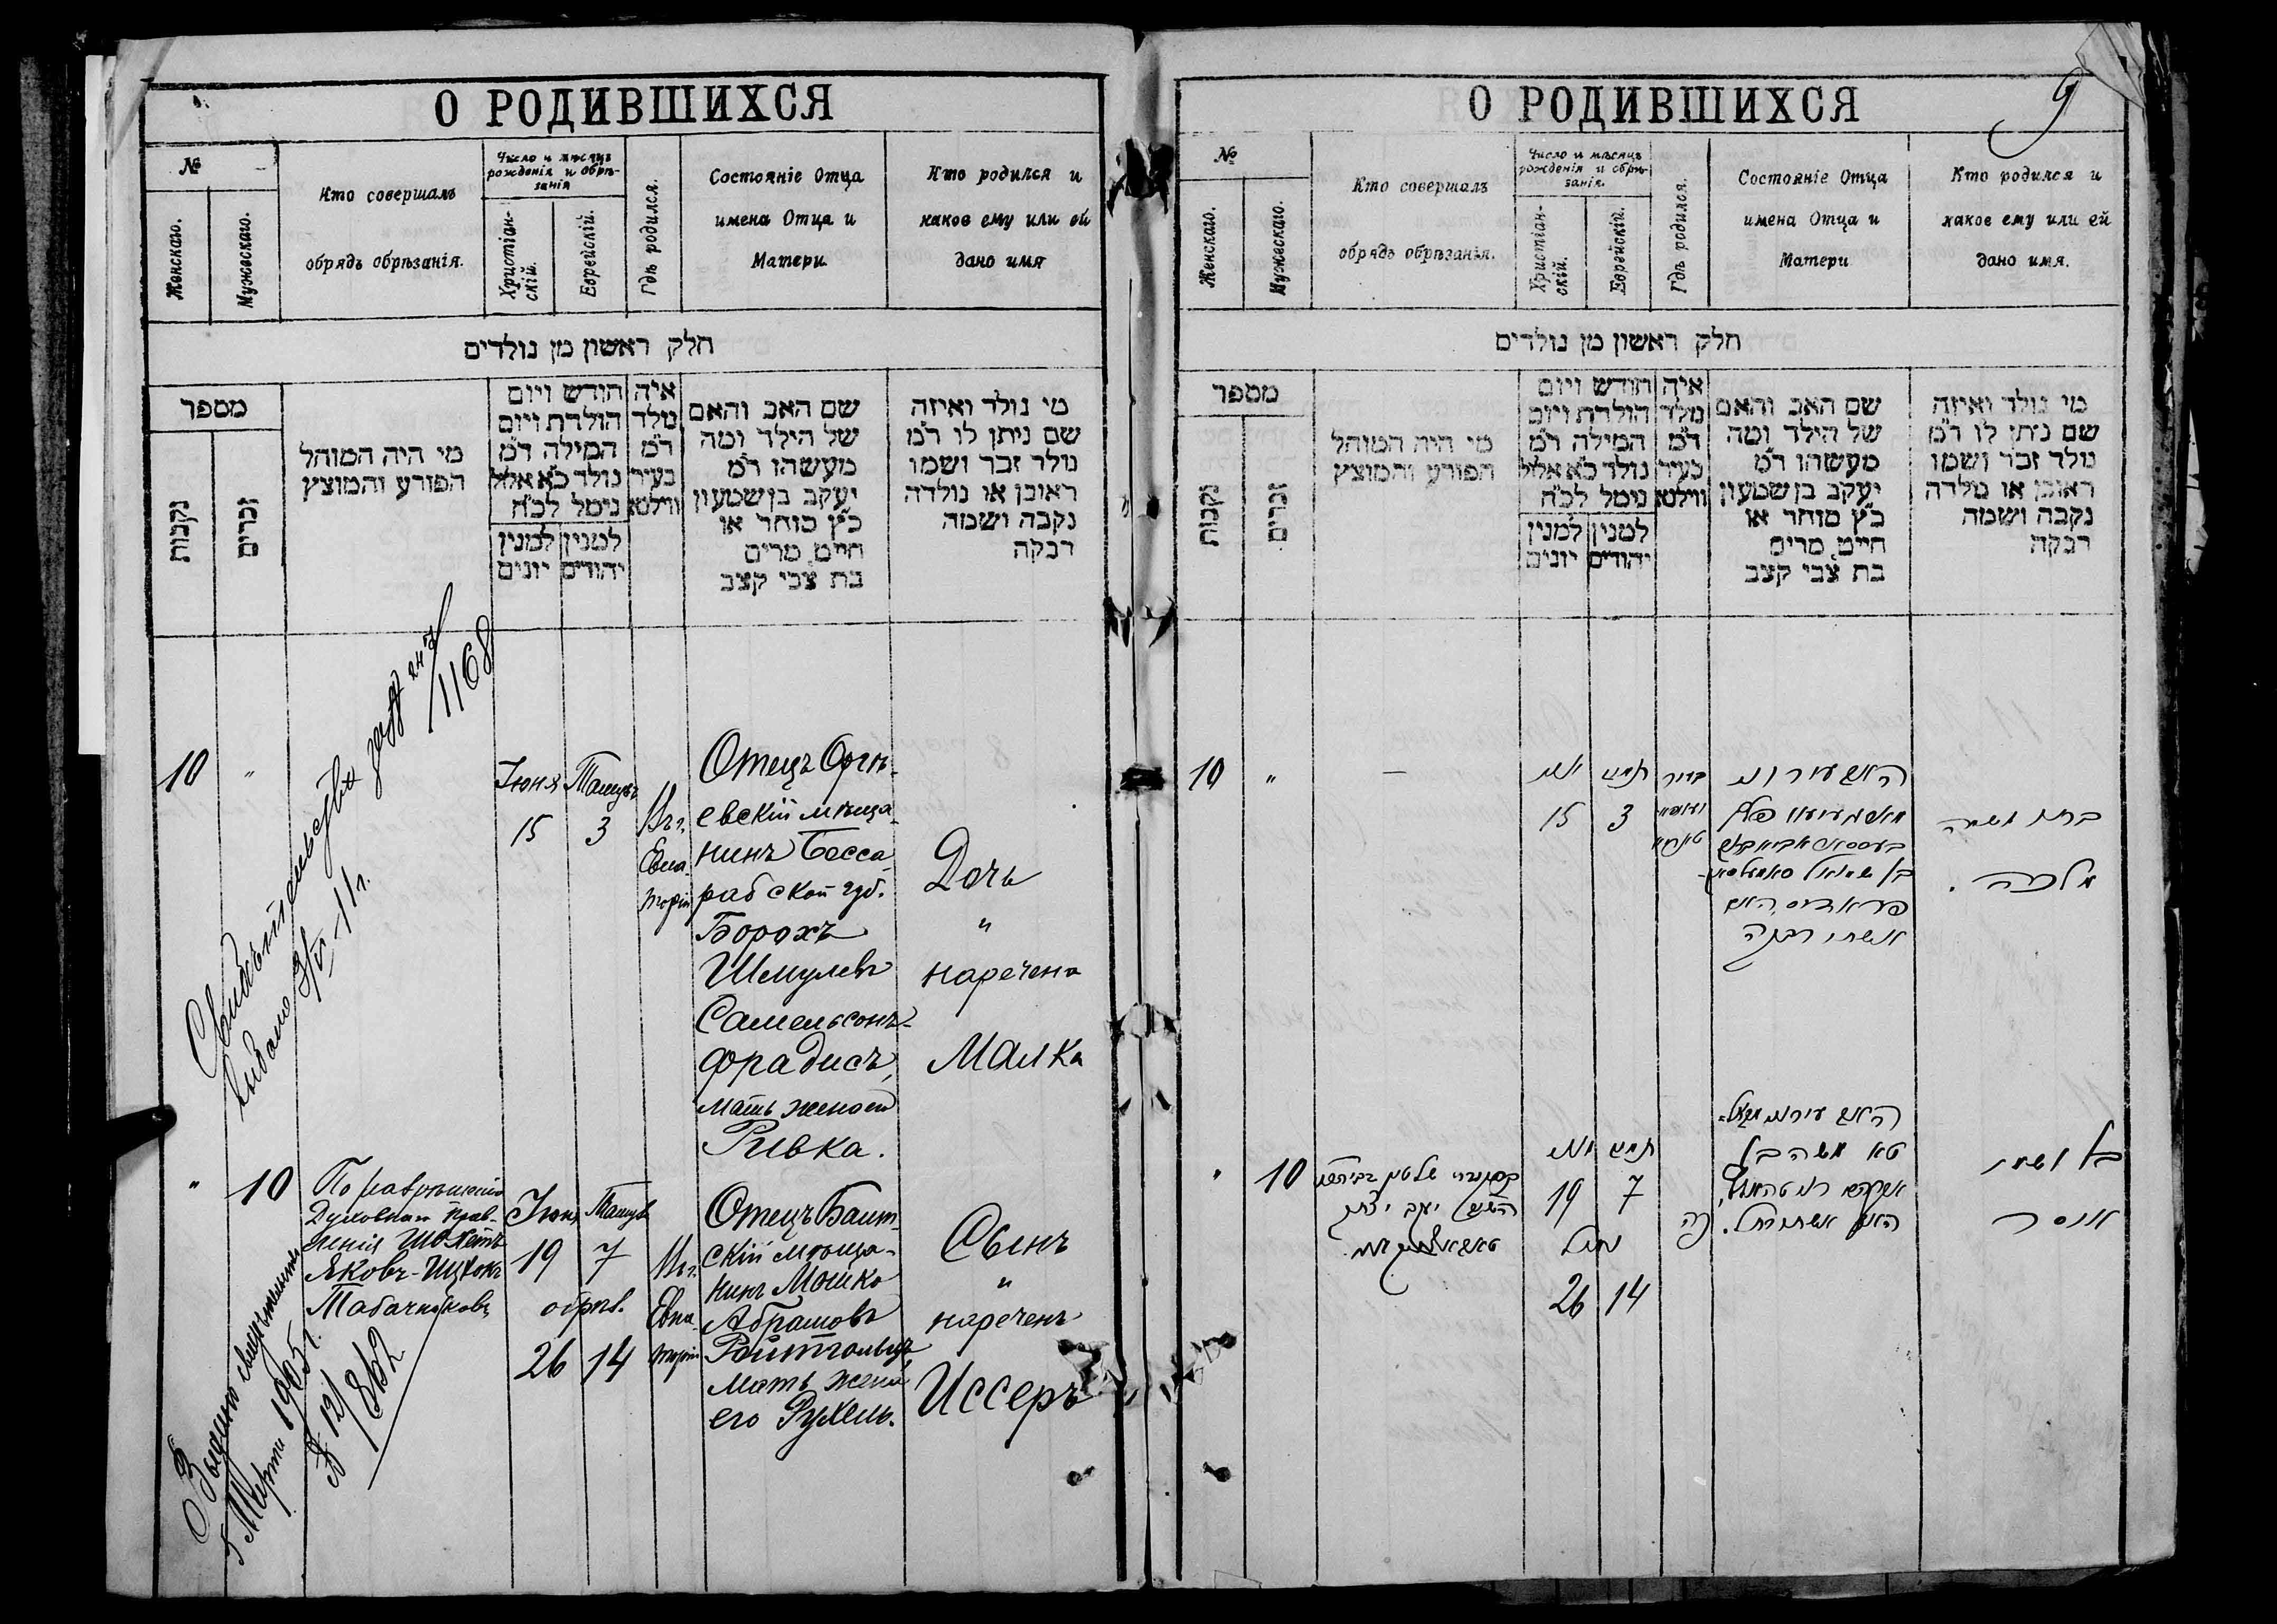 О РОДИВШИХСЯ
№
Женскаго.
Мужескаго.
Кто совершалъ
обрядъ обрѣзанія.
Число и мѣсяцъ
рожденія и обрѣ-
занія
Христіан-
скій.
Еврейскій.
Гдѣ родился.
Состояніе Отца
имена Отца и
Матери
Кто родился и
какое ему или ей
дано имя
חלק ראשון מן נולדים
מספר
נקבות
זכרים
מי היה המוהל
הפורע והמוצץ
חודש ויום
הולדת ויום
המילה ד״מ
נולד כ״א אלול
נימל לכ״ח
למנין למנין
יהודים יונים
איה
נולד
ד״מ
בעיר
ווילנא
שם האב והאם
של הילד ומה
מעשהו ד״מ
יעקב בן שמעון
כ״ץ סוחר או
חייט, מרים
בת צבי קצב
מי נולד ואיזה
שם ניתן לו ד״מ
נולד זכר ושמו
ראובן או נולדה
נקבה ושמה
רבקה
10 "
Свидѣтельство
выдано
11 г.
1168
Іюня Тамузъ
15 3
Въ г.
Евпа
торіи
Отецъ Оргѣ-
евскій мѣща-
нинъ Бесса-
рабской губ.
Борохъ
Шмулевъ
Самельсонъ-
Фрадисъ,
мать жена его
Ривка.
Дочь
"
наречена
Малка
" 10
По разрѣшенію
Духовнаго прав-
ленія Шохетъ
Яковъ-Ицхокъ
Табачниковъ
Іюня Тамузъ
19 7
обрѣз.
26 14
Въ г.
Евпа
торіи
Отецъ Балт-
скій мѣща-
нинъ Мошко
Абрамовъ
Ройтгольцъ
мать жена
его Рухель.
Сынъ
"
нареченъ
Иссеръ
5 Марта 1905 г.
№ 12/862
О РОДИВШИХСЯ
9
№
Женскаго.
Мужескаго.
Кто совершалъ
обрядъ обрѣзанія.
Число и мѣсяцъ
рожденія и обрѣ-
занія.
Христіан-
скій.
Еврейскій.
Гдѣ родился.
Состояніе Отца
имена Отца и
Матери
Кто родился и
какое ему или ей
дано имя.
חלק ראשון מן נולדים
מספר
נקבות
זכרים
מי היה המוהל
הפורע והמוצץ
חודש ויום
הולדת ויום
המילה ד״מ
נולד כ״א אלול
נימל לכ״ח
למנין למנין
יהודים יונים
איה
נולד
ד״מ
בעיר
ווילנא
שם האב והאם
של הילד ומה
מעשהו ד״מ
יעקב בן שמעון
כ״ץ סוחר או
חייט, מרים
בת צבי קצב
מי נולד ואיזה
שם ניתן לו ד״מ
נולד זכר ושמו
ראובן או נולדה
נקבה ושמה
רבקה
10 " —
יוני תמוז
15 3
האב עירוני
בן שמואל
פראדיס, האם
אשתו רבקה
בת ושמה
מלכה.
" 10
יעקב יצחק
יוני תמוז
19 7
נימול
26 14
האב עירוני
משה בן
האם אשתו רחל.
בן ושמו
איסר